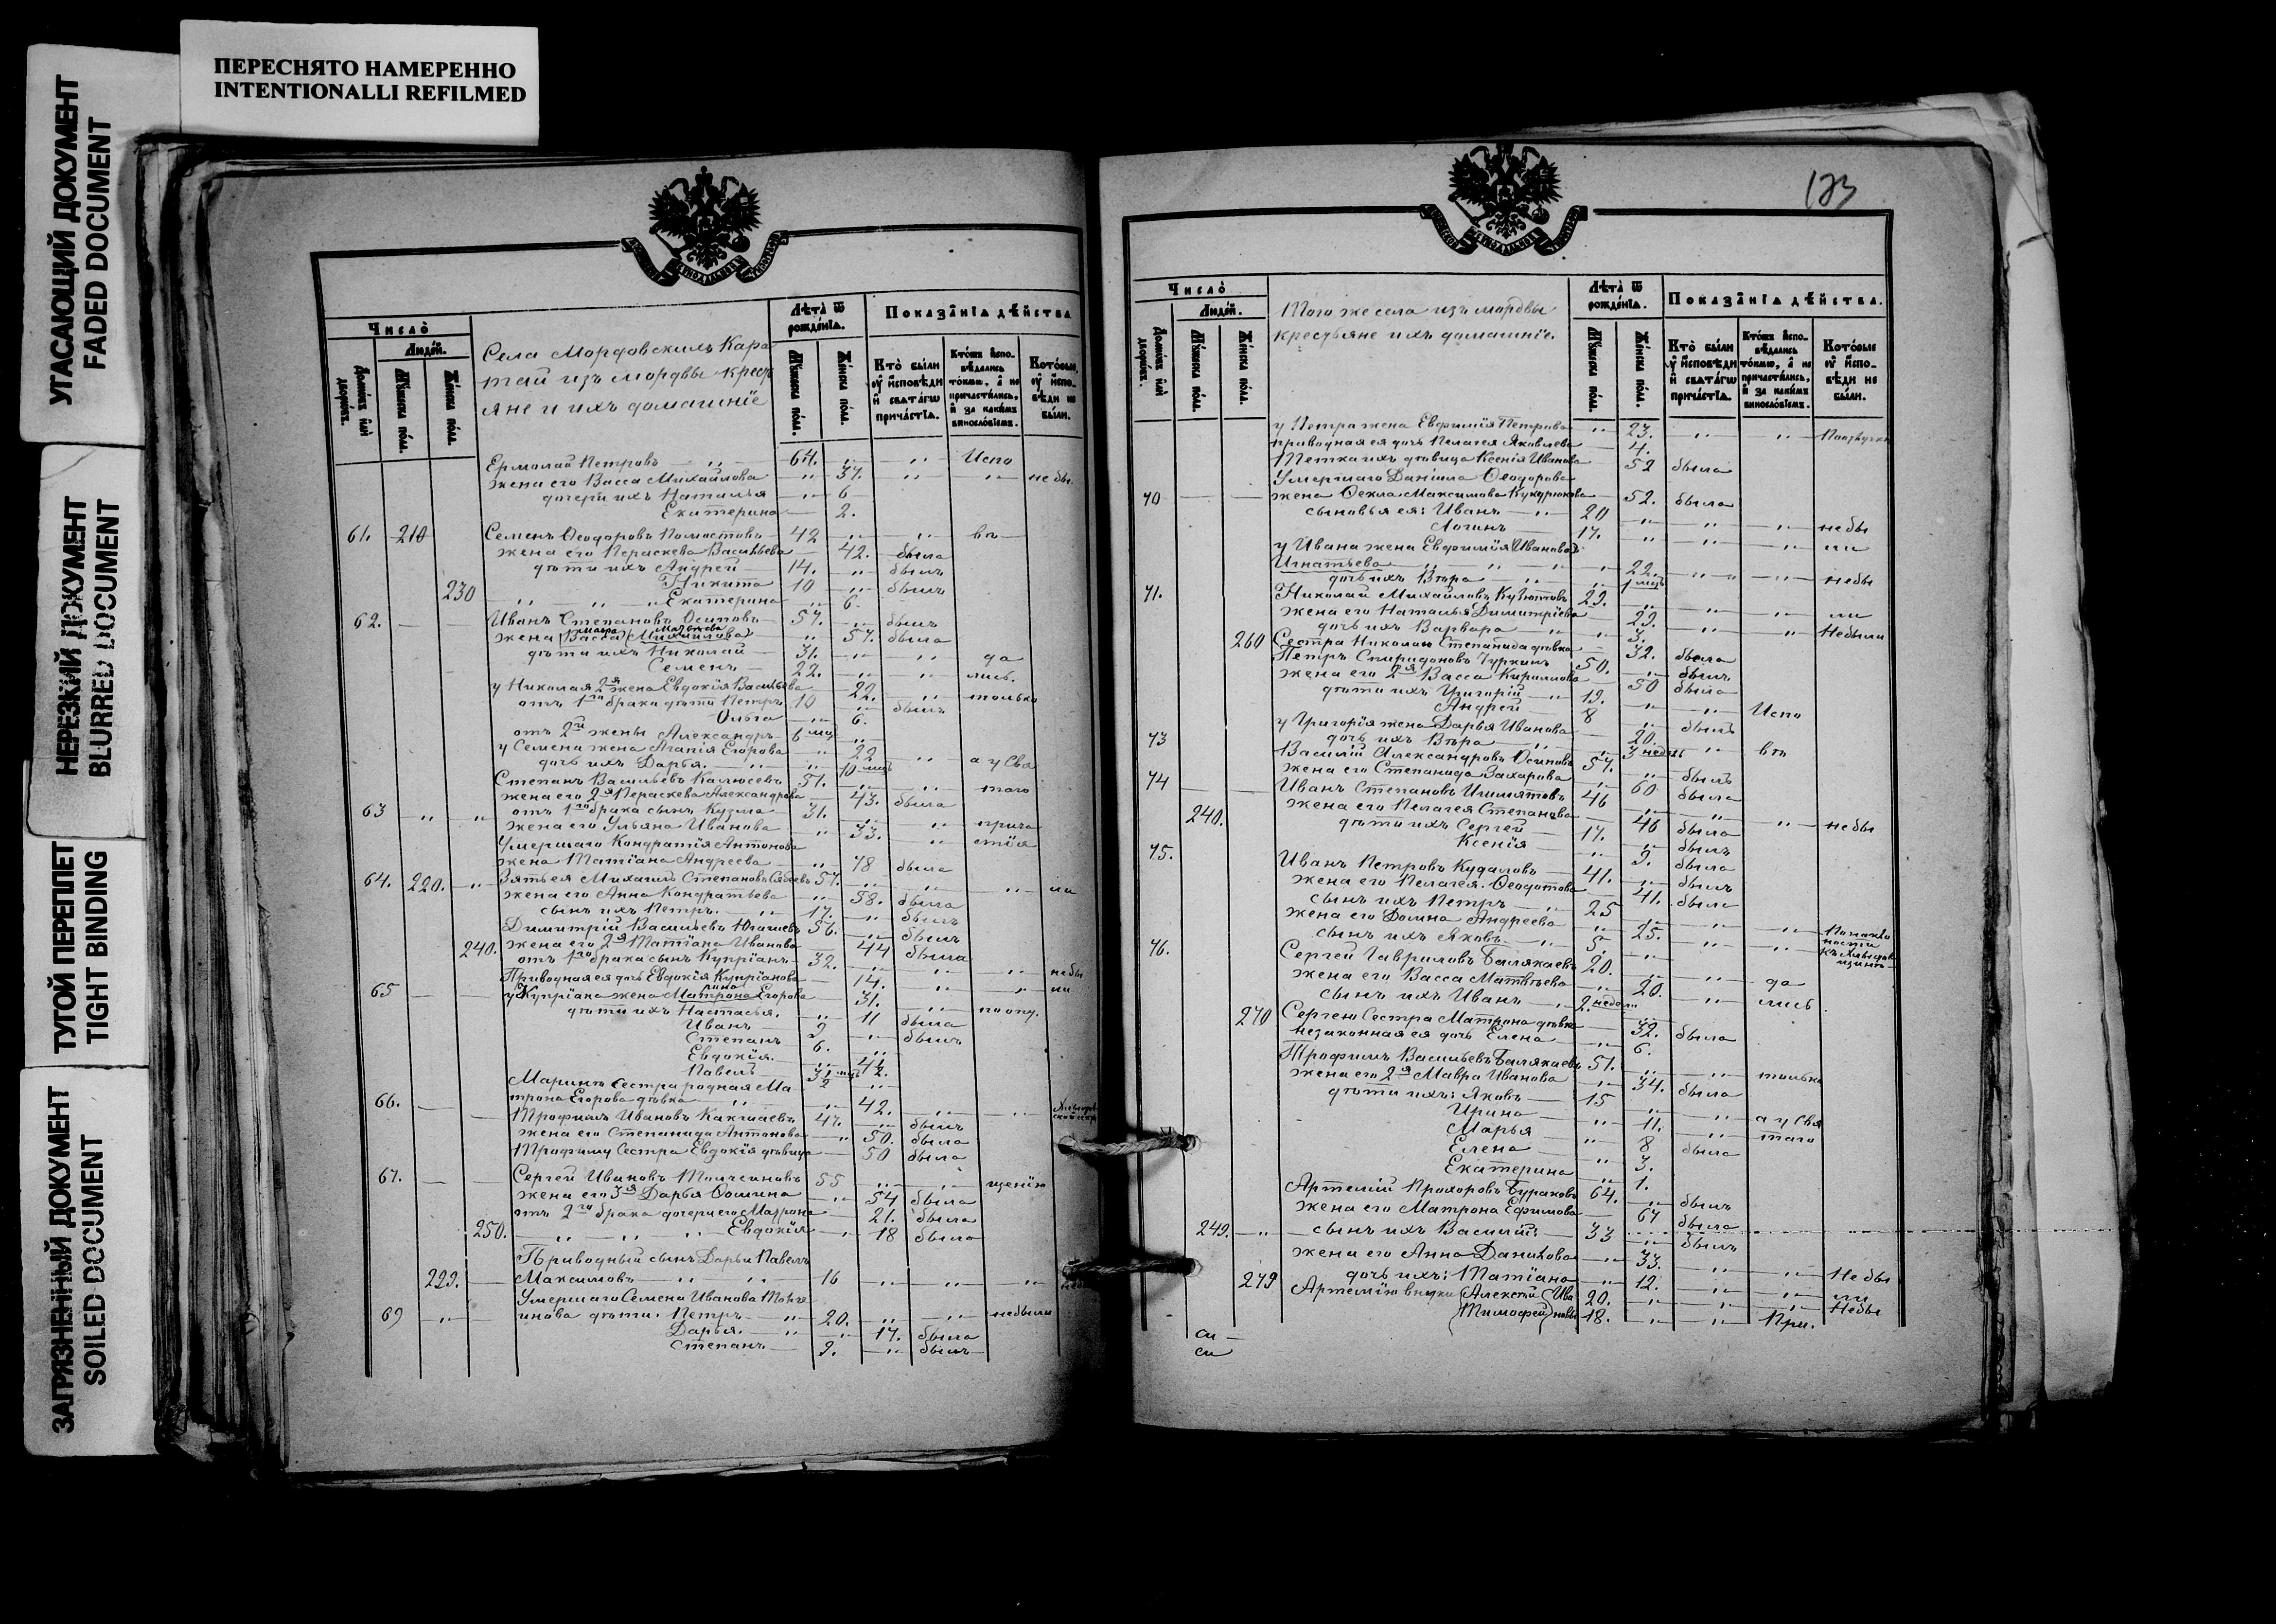 ПЕРЕСНЯТО НАМЕРЕННО
INTENTIONALLI REFILMED
УГАСАЮЩИЙ ДОКУМЕНТ
FADED DOCUMENT
НЕРЕЗКИЙ ДОКУМЕНТ
BLURRED DOCUMENT
ТУГОЙ ПЕРЕПЛЕТ
TIGHT BINDING
ЗАГРЯЗНЕННЫЙ ДОКУМЕНТ
SOILED DOCUMENT
Число̀
Людéй.
Домѡвъ илѝ дворѡвъ.
Мꙋ́жеска пóла.
Жéнска пóла.
Села Мордовскихъ Кара
тай изъ мордвы кресть
яне и ихъ домашніе
Лѣ́та ѿ рождéнїа.
Мꙋ́жеска пóла.
Жéнска пóла.
Показáнїа дѣ́йства
Ктò были оу исповѣди и свѧтáгѡ причáстїѧ.
Ктóже исповѣдались тóкмѡ, а не причастились, и за какимъ винослóвїемъ.
Котóрые оу исповѣди не были.
Ермолай Петровъ 64. Испо
жена его Васса Михайлова 37. не бы
дочери ихъ Наталья 6
Екатерина 2.
61. 210 Семенъ Ѳеодоровъ 42 вѣ
жена его Параскева Васильева 42. была
дѣти ихъ Андрей 14. былъ
Никита 10 былъ
230 Екатерина 6.
62. Иванъ Степановъ Осиповъ 57. былъ
жена Васса Михаилова 57. была
дѣти ихъ Николай 31. да
Семенъ 22. лись.
у Николая 2я жена Евдокія Васильева 22. только
отъ 1го брака дѣти Петръ 10 былъ
Ольга 6.
отъ 2й жены Александръ 6 мц
у Семена жена Агапія Егорова 22
дочь ихъ Дарья. 10 мцъ а у Свя
Степанъ Васильевъ 51. таго
жена его 2я Параскева Александрова 43. была
63 отъ 1го брака сынъ Кузма 31. прича
жена его Ульяна Иванова 33. стія
Умершаго Кондратія Антонова
жена Татіана Андреева 78 была
64. 220. Зять ея Михаилъ Степановъ 57. ли
жена его Анна Кондратьева 58. была
сынъ ихъ Петръ. 17. былъ
Димитрій Васильевъ 56. былъ
240. жена его 2я Татіана Иванова 44 была
отъ 1го брака сынъ Купріанъ 32. небы
Приводная ея дочь Евдокія Купріанова 14. ли
65 у Купріана жена Егорова 31. по опу.
дѣти ихъ Настасья. 11 была
Иванъ 9 былъ
Степанъ 6.
Евдокія.
Павелъ
Маринѣ Сестра родная Ма
66. трона Егорова дѣвка 42.
Трофимъ Ивановъ Какшаевъ 47. былъ
жена его Степанида Антонова 50. была
Трофиму Сестра Евдокія дѣвица 50 была
67. Сергей Ивановъ 55 щенію
жена его 3я Дарья Ѳомина 54 была
отъ 2го брака дочери его Матрона 21. была
250. Евдокія 18 была
Приводный сынъ Дарьи Павелъ
229. Максимовъ 16
Умершаго Семена Иванова
69 дѣти: Петръ 20. небыли
Дарья. 17. была
Степанъ 9. былъ
Число̀
Людéй.
Домѡвъ илѝ дворѡвъ.
Мꙋ́жеска пóла.
Жéнска пóла.
Того же села изъ мордвы
крестьяне ихъ домашніе.
Лѣ́та ѿ рождéнїа.
Мꙋ́жеска пóла.
Жéнска пóла.
Показáнїа дѣ́йства.
Ктò были оу исповѣди и свѧтáгѡ причáстїѧ.
Ктóже исповѣдались тóкмѡ, а не причастились, и за какимъ винослóвїемъ.
Котóрые оу исповѣди не были.
у Петра жена Евфимія Петрова 23.
приводная ея дочь Пелагея Яковлева 4.
Тетка ихъ дѣвица Ксенія Иванова 52 была
Умершаго Даніила Ѳеодорова
70 жена Ѳекла Максимова 52. была
сыновья ея: Иванъ 20
Логинъ 17. небы
у Ивана жена Евфимія Иванова ли
Игнатьева 22.
дочь ихъ Вѣра 1 мцъ небы
71. Николай Михайловъ 29. ли
жена его Наталья Димитріева 29.
дочь ихъ Варвара 3. Небыли
260 Сестра Николаю Степанида дѣвка 32. была
Петръ Спиридоновъ Чуркинъ 50. былъ
жена его 2я Васса Кирилова 50 была
дѣти ихъ Григорій 19.
Андрей 8 Испо
у Григорія жена Дарья Иванова 20. былъ
73 дочь ихъ Вѣра 3 недѣль вѣ
Василій Александровъ Осиповъ 57. былъ
жена его Степанида Захарова 60 была
74 Иванъ Степановъ 46
жена его Пелагея Степанова 46 была небы
240. дѣти ихъ Сергей 17. былъ
Ксенія 9. была
75. Иванъ Петровъ Кудаловъ 41. былъ
жена его Пелагея Ѳеодотова 41. была
сынъ ихъ Петръ 25
жена его Домна Андреева 25.
сынъ ихъ Яковъ 5.
76. Сергей Гавриловъ Балякаевъ 20.
жена его Васса Матвѣева 20. да
сынъ ихъ Иванъ 2 недели лись
270 Сергею Сестра Матрона дѣвка 32. была
незаконная ея дочь Елена 6.
Трофимъ Васильевъ Балякаевъ 51. только
жена его 2я Мавра Иванова 34. была
дѣти ихъ: Яковъ 15
Ирина 11. а у Свя
Марья 8 таго
Елена 3. была
Екатерина 1.
Артемій Прохоровъ Бураковъ 64. былъ
жена его Матрона Ефимова 67 была
249. сынъ ихъ Василій: 33 былъ
жена его Анна Данилова 33.
279 дочь ихъ: Татіана 12. Небы
Артемію внуки Алексѣй Ива 20. ли
Тимофей новы 18. Небы
При.
123